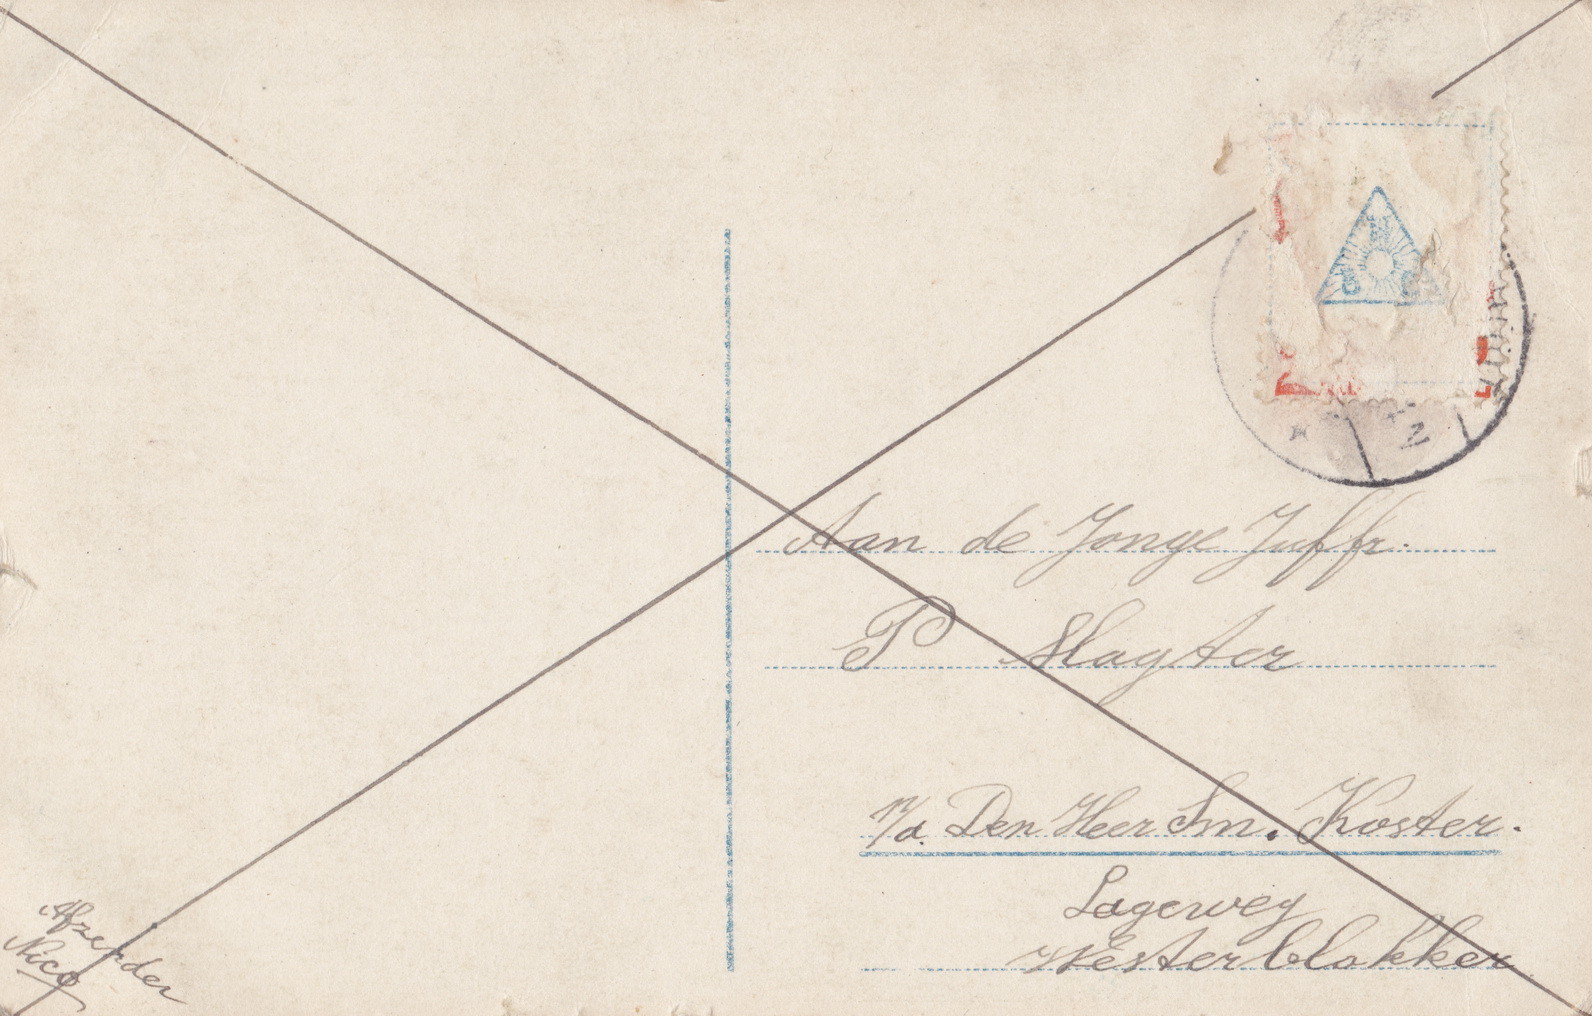 Aan de Jonge Juffr.
P Slagter
p/a. Den Heer Sm. Koster.
Lageweg
Westerblokker
Afzender
Nico